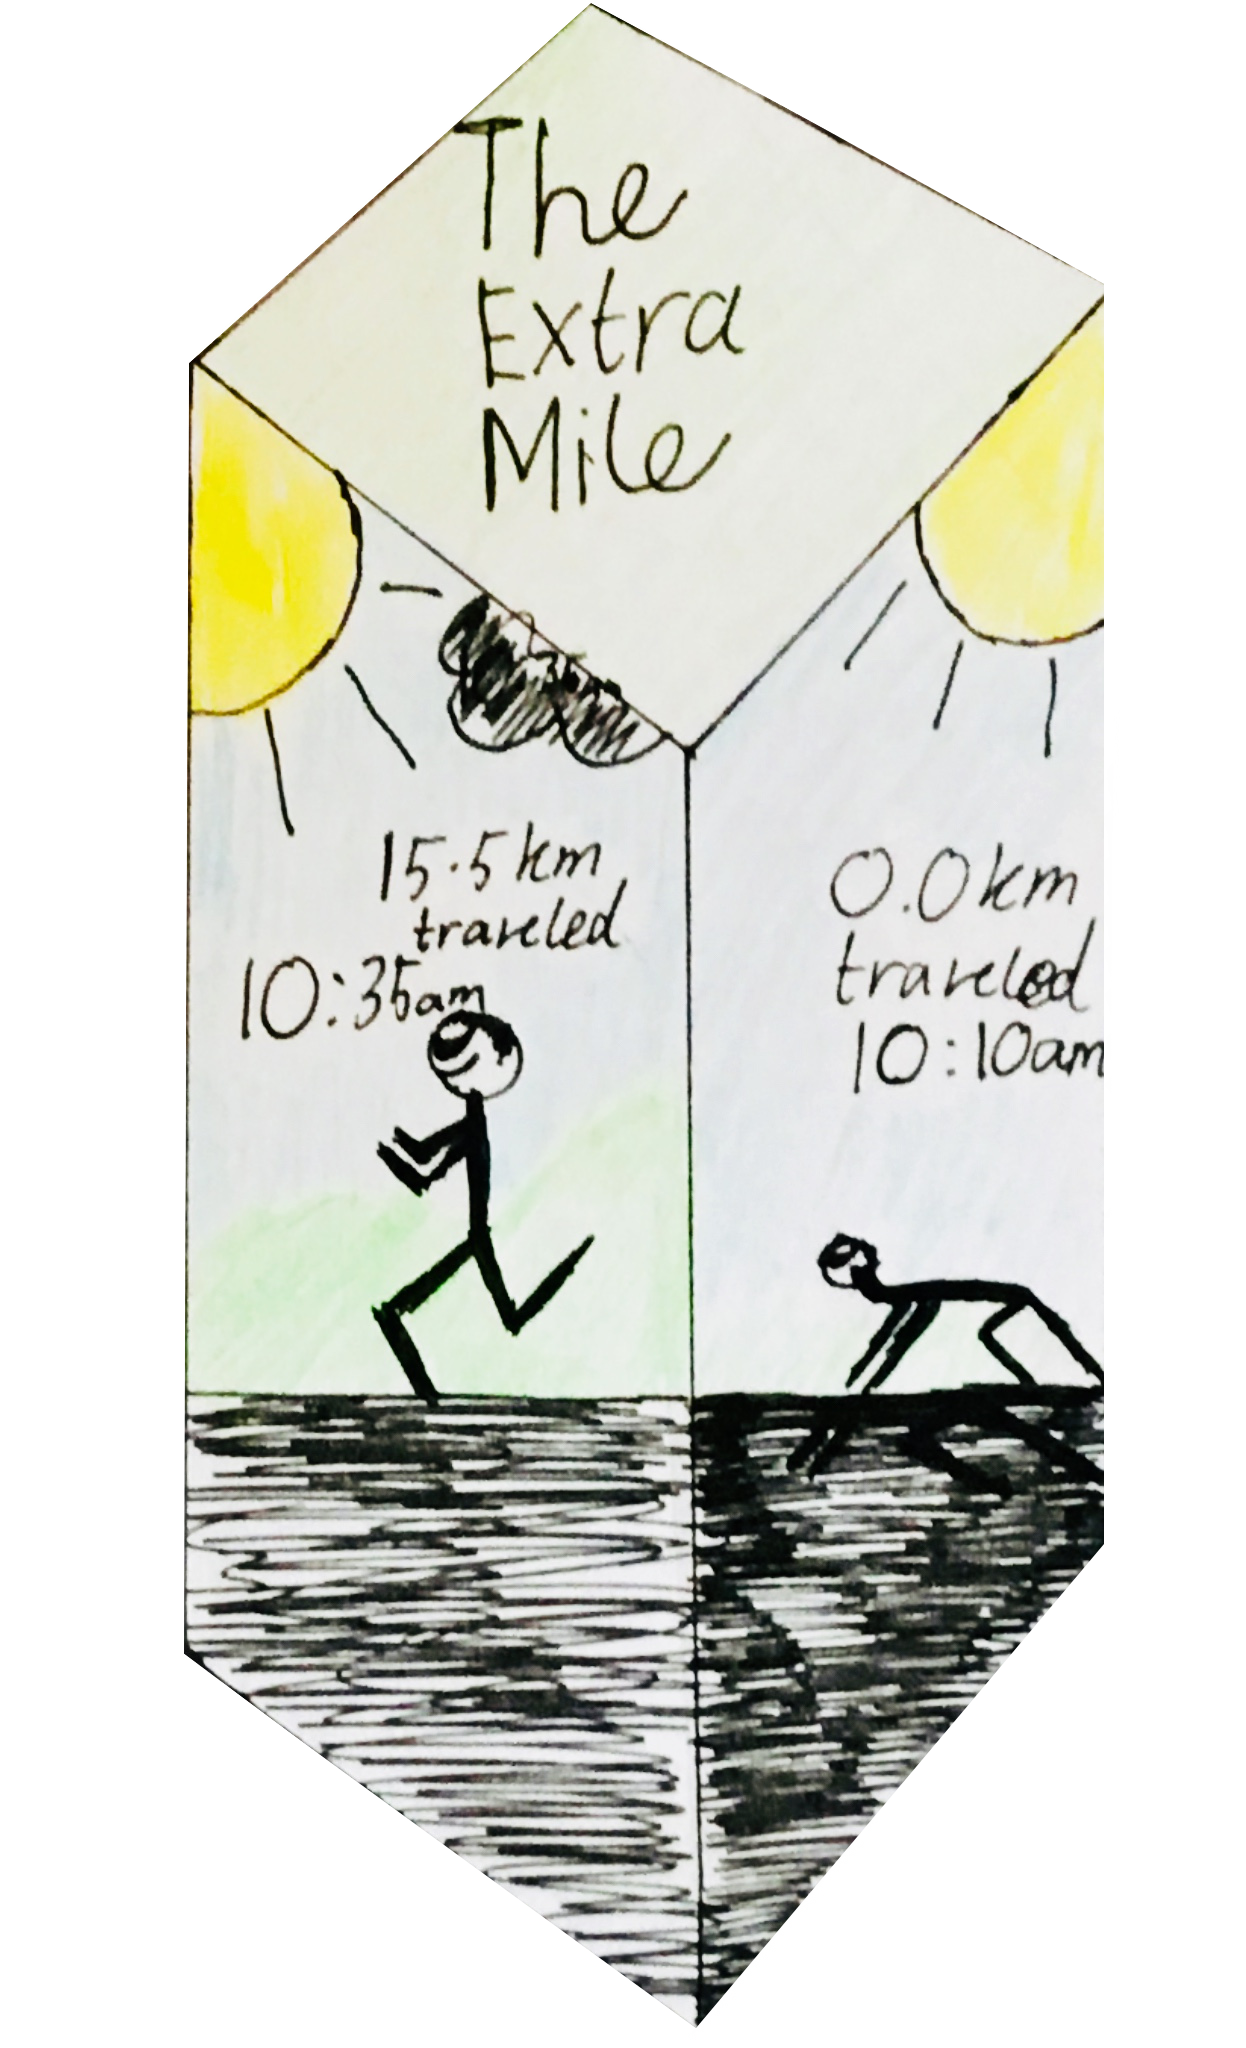 The
Extra
Mile
15.5km
traveled
10:35am
0.0km
traveled
10:10am